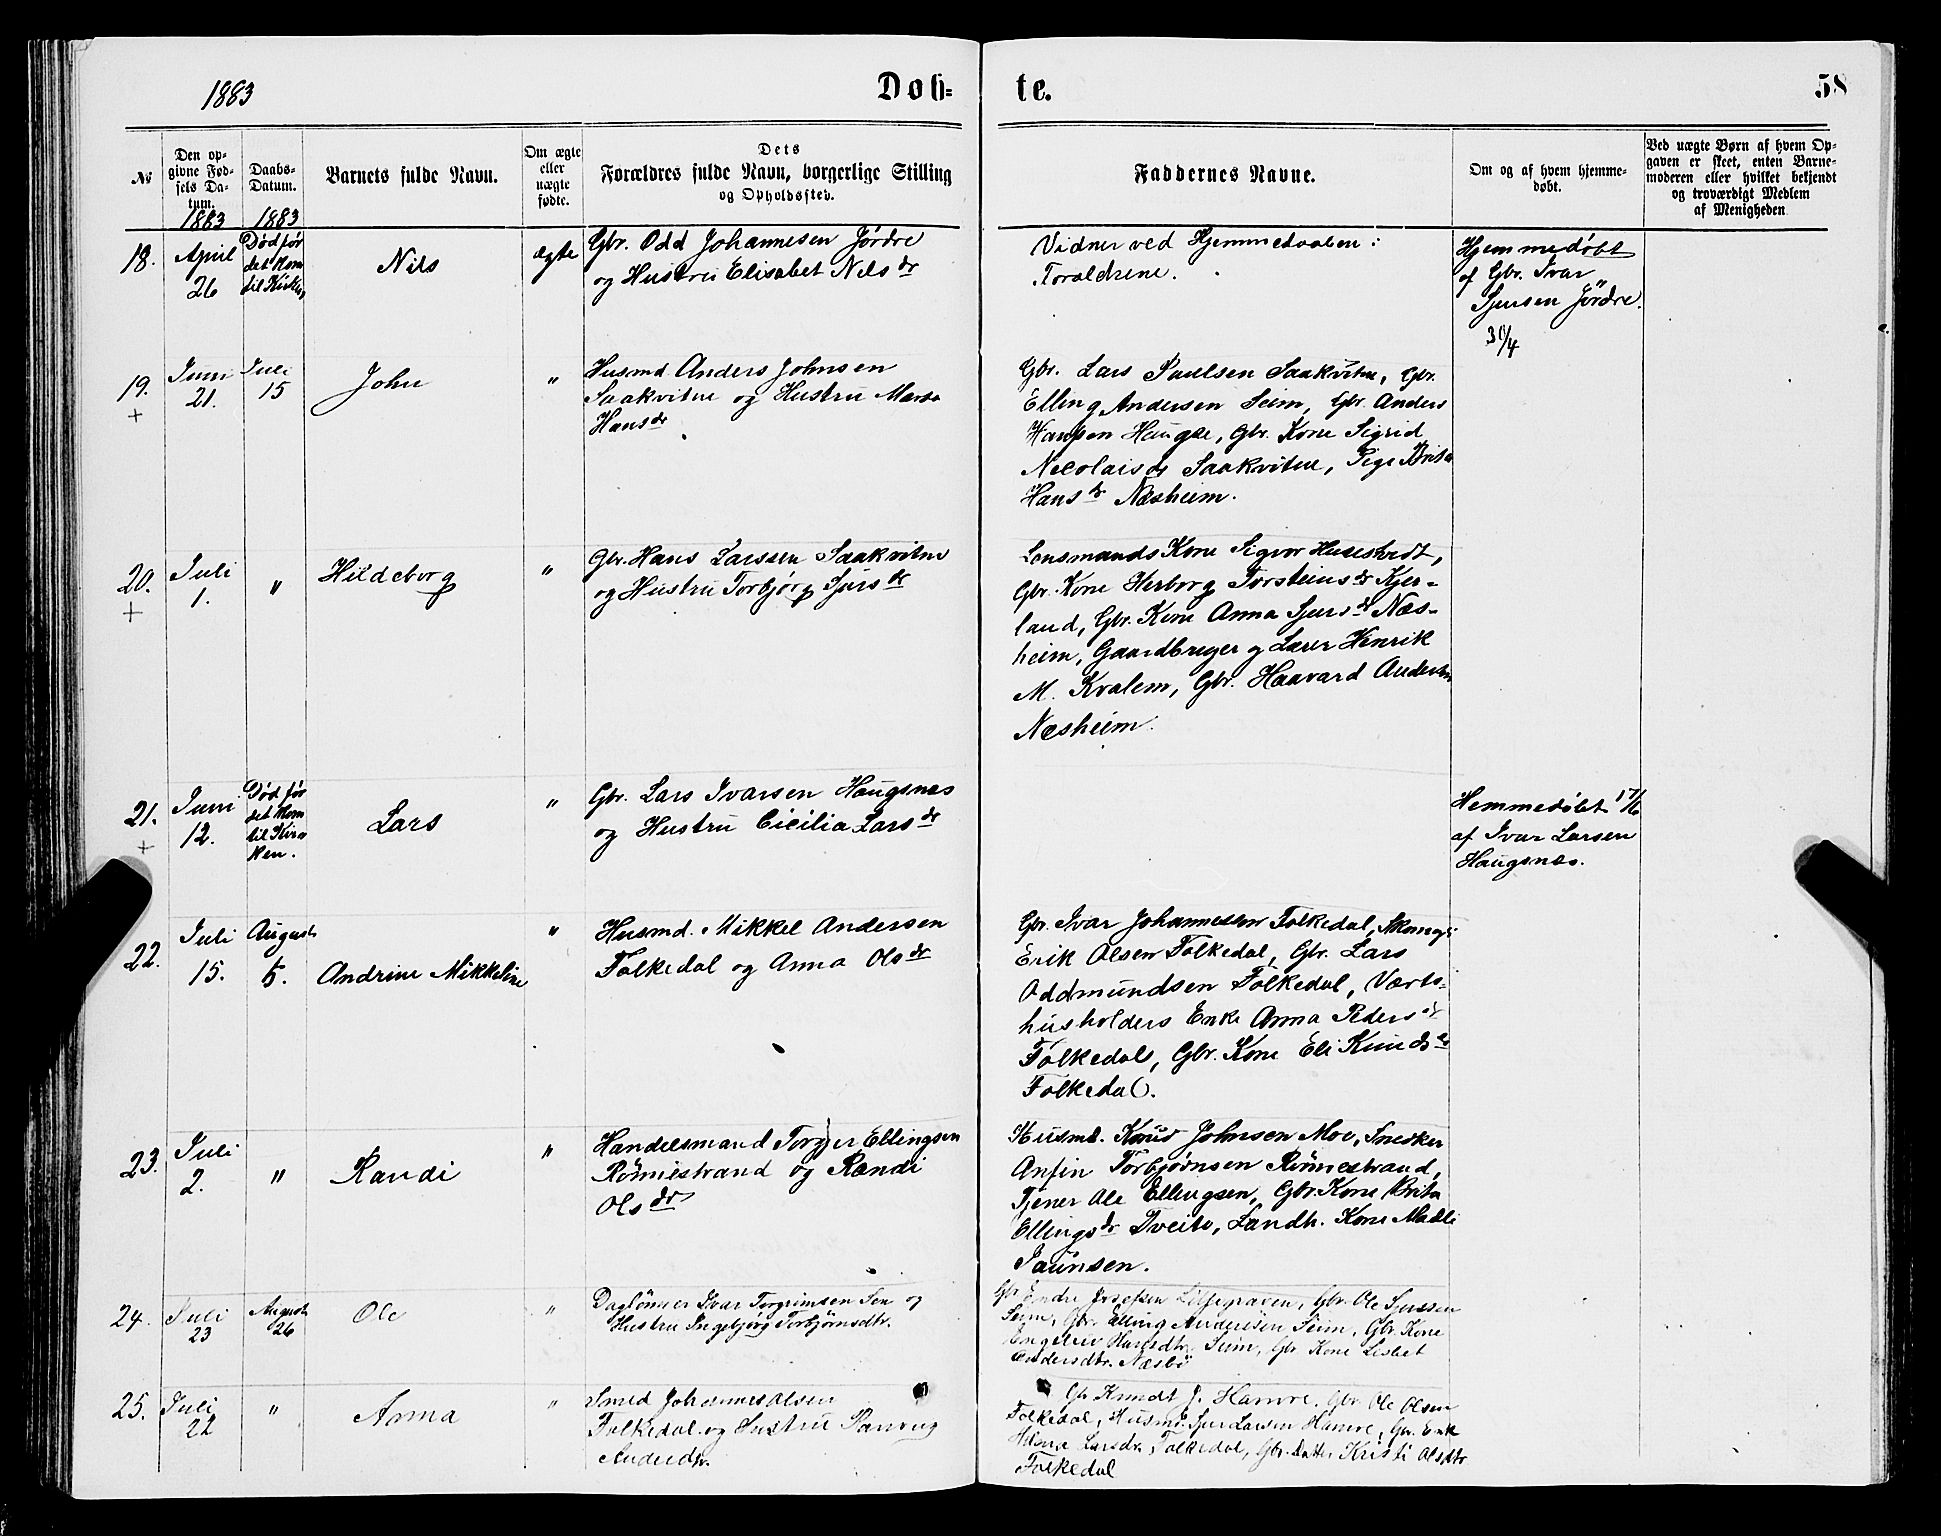 1883
Døb=
te.
58
No
Den op-
givne Fød-
sels Da-
tum.
1883
Daabs-
Datum.
1883
Barnets fulde Navn.
Om ægte
eller
uægte
fødte.
Dets
Forældres fulde Navn, borgerlige Stilling
og Opholdssted.
Faddernes Navne.
Om og af hvem hjemme-
døbt.
Ved uægte Børn af hvem Op-
gaven er skeet, enten Barne-
moderen eller hvilket bekjendt
og troværdigt Medlem
af Menigheden
18.
April
26
Død før
det kom
til Kirken
Nils
ægte
Gbr. Odd Johannesen Jørdre
og Hustru Elisabet Nilsdr
Vidner ved Hjemmedaaben:
Forældrene.
Hjemmedøbt
af Gbr. Ivar
Sjursen Jørdre.
30/4
19.
+
Juni
21.
Juli
15
John
"
Husmd. Anders Johnsen
Saakvitne og Hustru Marta
Hansdr
Gbr. Lars Paulsen Saakvitne, Gbr.
Elling Andersen Seim, Gbr. Anders
Hansen Haugse, Gbr. Kone Sigrid
Nicolaisdr Saakvitne, Pige Brita
Hansdr Næsheim.
20.
+
Juli
1.
"
Hildeborg
"
Gbr. Hans Larssen Saakvitne
og Hustru Torbjørg Sjursdr
Lensmands Kone Sigvor
Gbr. Kone Herborg Torsteinsdr Kjer-
land, Gbr. Kone Anna Sjursdr Næs-
heim, Gaardbruger og Lærer Henrik
M. Kvalem, Gbr. Haavard Andersen
Næsheim.
21.
+
Juni
12.
Død før
det kom
til Kir-
ken.
Lars
"
Gbr. Lars Ivarsen Haugsnæs
og Hustru Cicilia Larsdr
Hemmedøbt 17/6
af Ivar Larsen
Haugsnæs.
22.
Juli
15.
August
5.
Andrine Mikkeline
"
Husmd. Mikkel Andersen
Folkedal og Anna Olsdr
Gbr. Ivar Johannessen Folkedal,
Erik Olsen Folkedal, Gbr. Lars
Oddmundsen Folkedal, Værts-
husholders Enke Anna Pedersdr
Folkedal, Gbr. Kone Eli Knudsdr
Folkedal.
23.
Juli
2.
"
Randi
"
Handelsmand Torgjer Ellingsen
Rönnestrand og Randi
Olsdr
Husmd. Knud Johnsen Moe, Snedker
Anfin Torbjørnsen Rönnestrand,
Tjener Ole Ellingsen, Gbr. Kone Brita
Ellingsdr Tveito, Landh. Kone Madli
Jaunsen.
24.
Juli
23
August
26
Ole
"
Daglönner Ivar Torgrimsen Sen og
Hustru Ingebjørg Torbjörnsdtr.
Gbr Endre Josefsen Lillegraven, Gbr. Ole Sjurssen
Seim, Gbr. Elling Andersen Seim, Gbr. Kone
Hansdtr. Seim, Gbr Kone Lisbet
Andersdtr. Næsbö
25.
Juli
22
"
Anna
"
Smed Johannes Olsen
Folkedal og Hustru Ranveig
Andersdtr.
Gbr Knudt J. Hamre, Gbr. Ole Olsen
Folkedal, Husmd. Sjur Larsen Hamre, Gbr. Enk
Larsdtr. Folkedal, Gbr. Datter Kristi Olsdtr
Folkedal